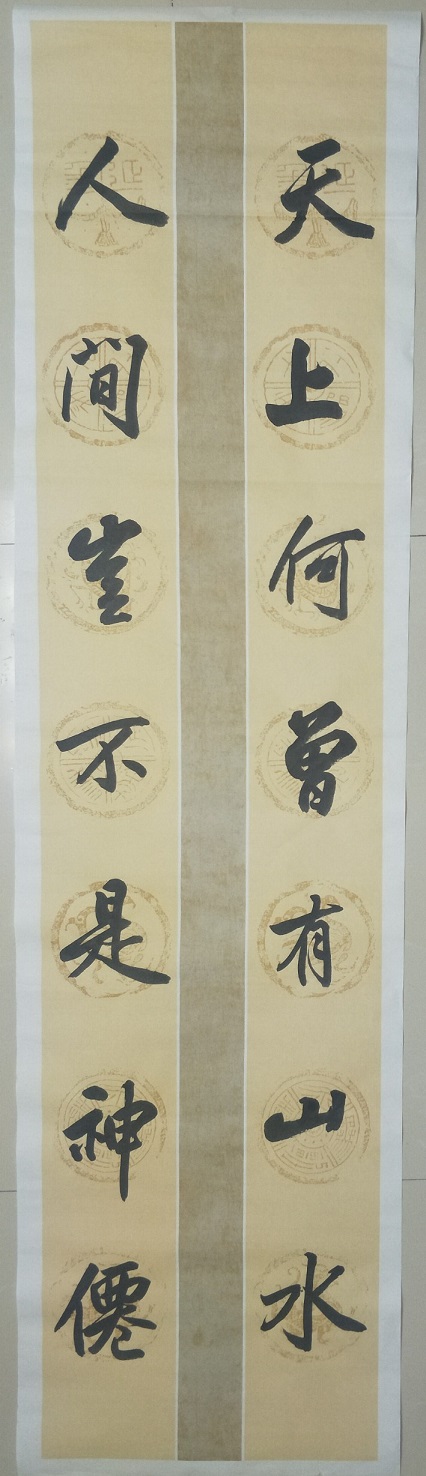 天上何曾有山水
人间岂不是神僊